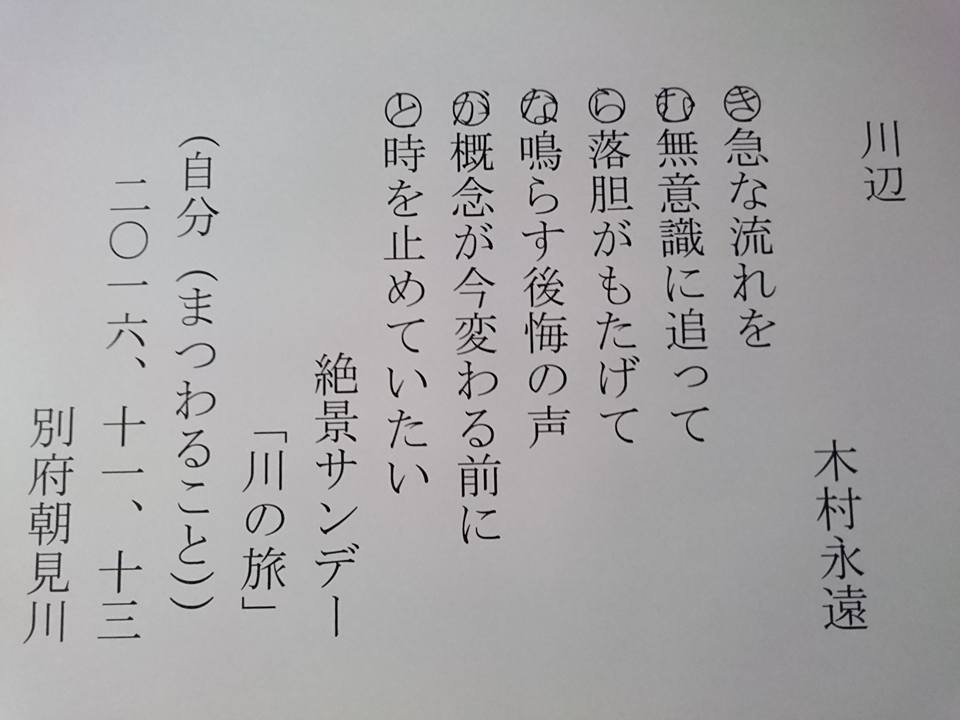 川辺
木村永遠
㋖急な流れを
㋰無意識に追って
㋶落胆がもたげて
㋤鳴らす後悔の声
が概念が今変わる前に
㋣時を止めていたい
絶景サンデー
「川の旅」
(自分(まつわること))
二〇一六、十一、十三
別府朝見川